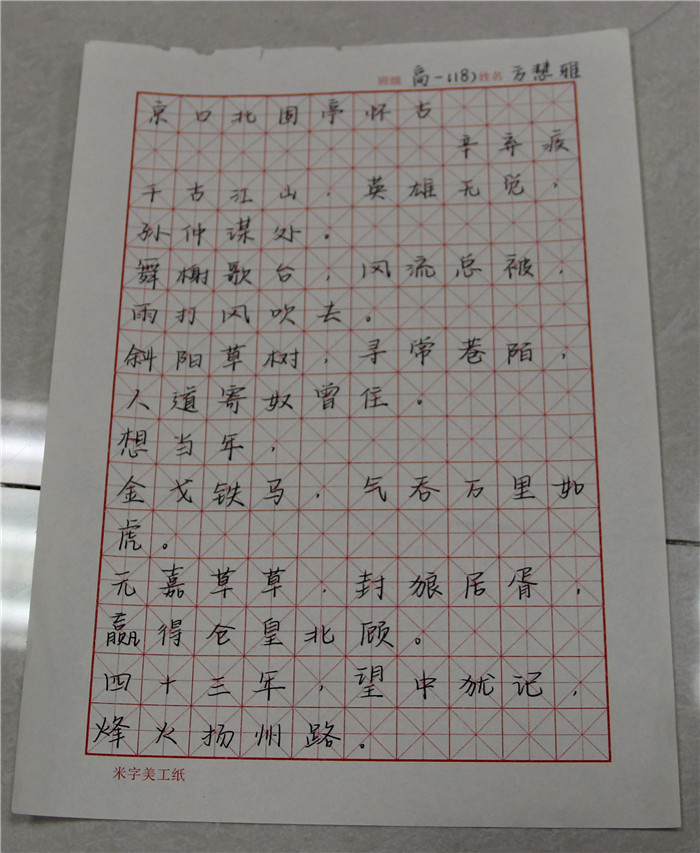 班级 高一(18) 姓名 方慧雅
京口北固亭怀古
辛弃疾
千古江山,英雄无觅,
孙仲谋处。
舞榭歌台,风流总被,
雨打风吹去。
斜阳草树,寻常巷陌,
人道寄奴曾住。
想当年,
金戈铁马,气吞万里如
虎。
元嘉草草,封狼居胥,
赢得仓皇北顾。
四十三年,望中犹记,
烽火扬州路。
米字美工纸